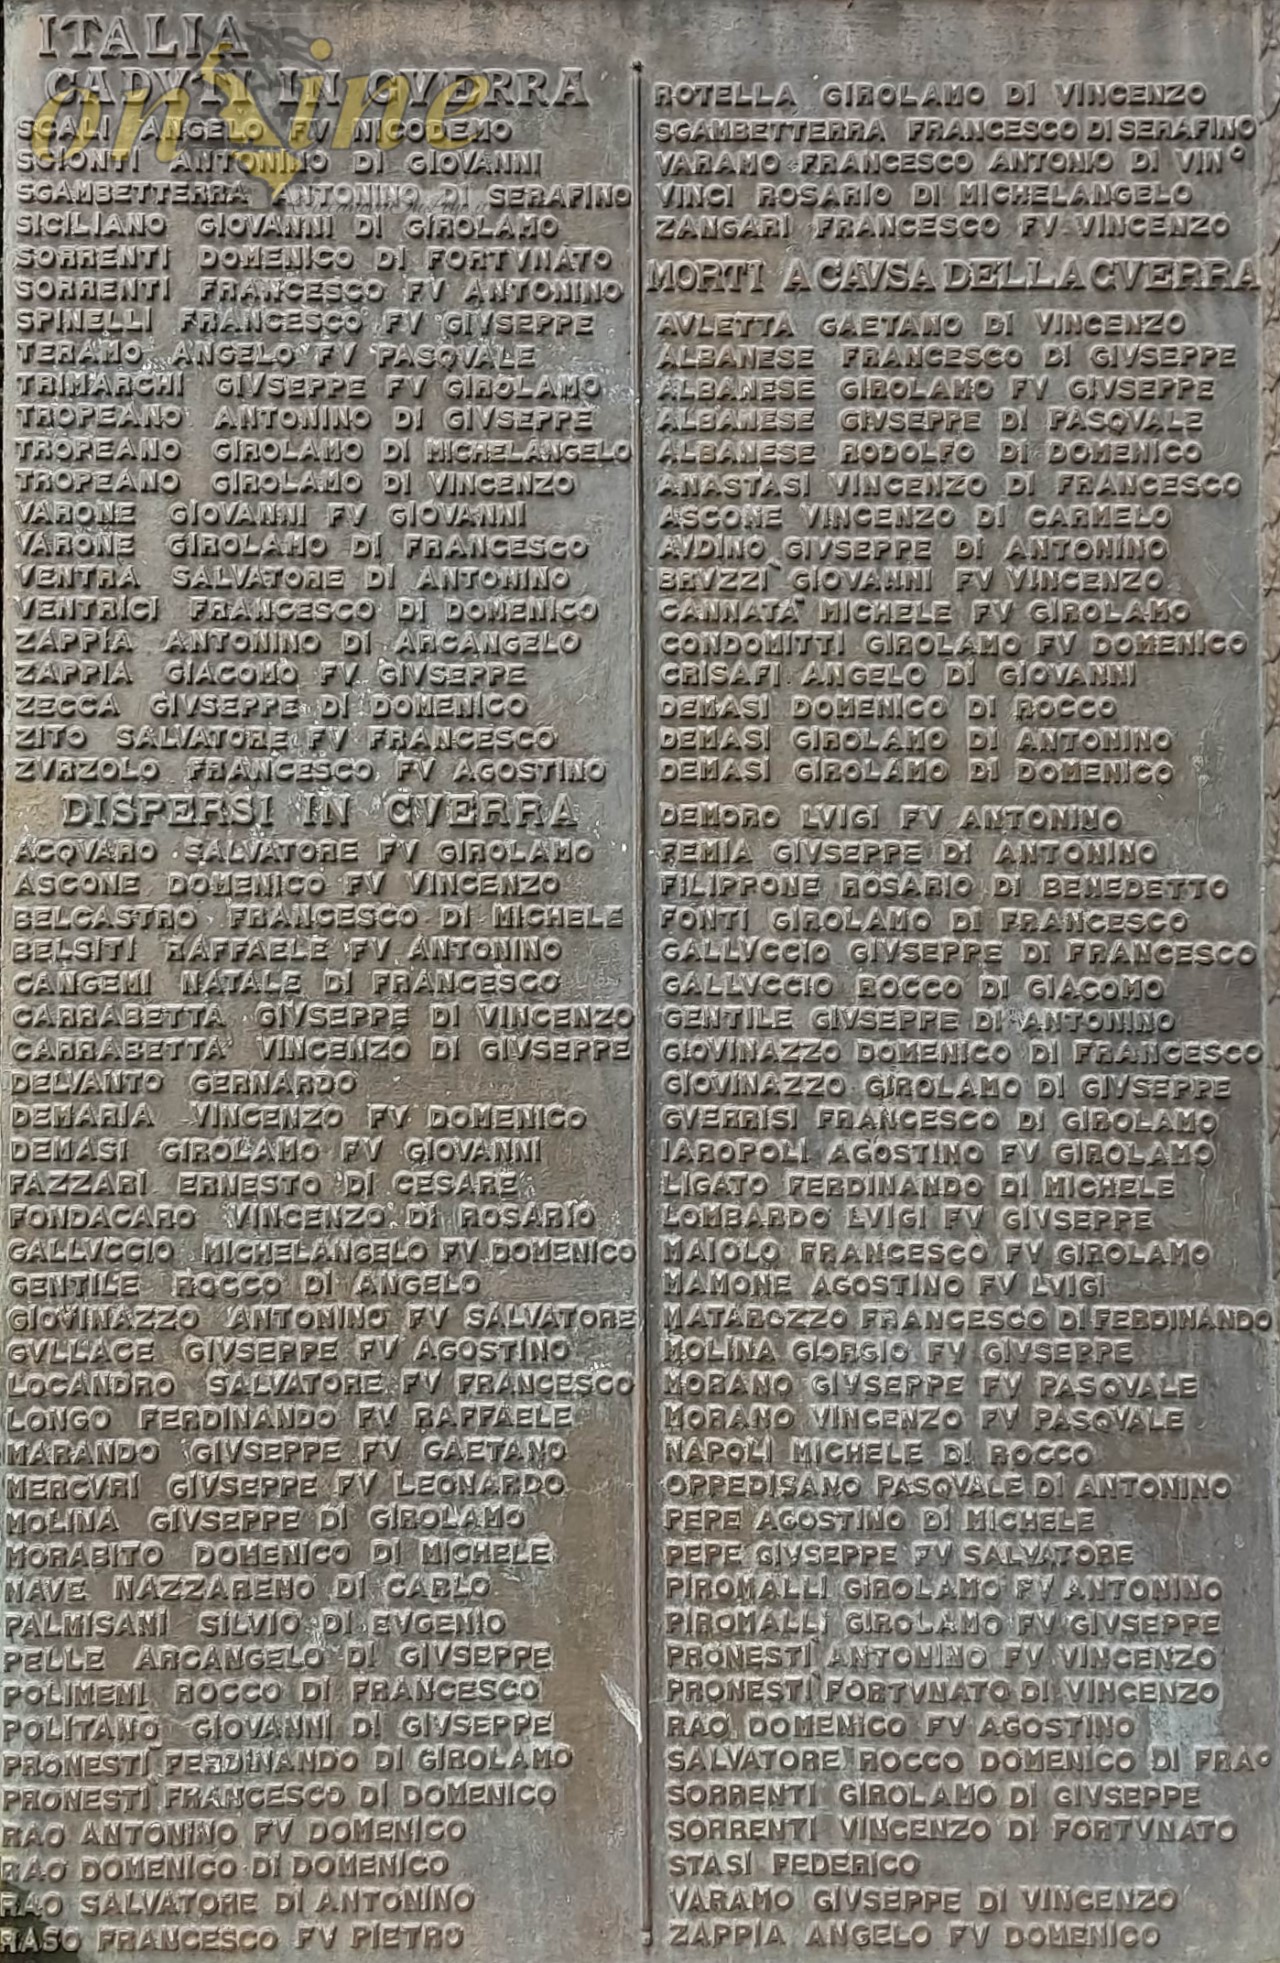 ITALIA
CADVTI IN GVERRA
SCALI ANGELO FV NICODEMO
SCIONTI ANTONINO DI GIOVANNI
SGAMBETTERRA ANTONINO DI SERAFINO
SICILIANO GIOVANNI DI GIROLAMO
SORRENTI DOMENICO DI FORTVNATO
SORRENTI FRANCESCO FV ANTONINO
SPINELLI FRANCESCO FV GIVSEPPE
TERAMO ANGELO FV PASQVALE
TRIMARCHI GIVSEPPE FV GIROLAMO
TROPEANO ANTONINO DI GIVSEPPE
TROPEANO GIROLAMO DI MICHELANGELO
TROPEANO GIROLAMO DI VINCENZO
VARONE GIOVANNI FV GIOVANNI
VARONE GIROLAMO DI FRANCESCO
VENTRA SALVATORE DI ANTONINO
VENTRICI FRANCESCO DI DOMENICO
ZAPPIA ANTONINO DI ARCANGELO
ZAPPIA GIACOMO FV GIVSEPPE
ZECCA GIVSEPPE DI DOMENICO
ZITO SALVATORE FV FRANCESCO
ZVRZOLO FRANCESCO FV AGOSTINO
DISPERSI IN GVERRA
ACQVARO SALVATORE FV GIROLAMO
ASCONE DOMENICO FV VINCENZO
BELCASTRO FRANCESCO DI MICHELE
BELSITI RAFFAELE FV ANTONINO
CANGEMI NATALE DI FRANCESCO
CARRABETTA GIVSEPPE DI VINCENZO
CARRABETTA VINCENZO DI GIVSEPPE
DELVANTO GERNARDO
DEMARIA VINCENZO FV DOMENICO
DEMASI GIROLAMO FV GIOVANNI
FAZZARI ERNESTO DI CESARE
FONDACARO VINCENZO DI ROSARIO
GALLVCCIO MICHELANGELO FV DOMENICO
GENTILE ROCCO DI ANGELO
GIOVINAZZO ANTONINO FV SALVATORE
GVLLACE GIVSEPPE FV AGOSTINO
LOCANDRO SALVATORE FV FRANCESCO
LONGO FERDINANDO FV RAFFAELE
MARANDO GIVSEPPE FV GAETANO
MERCVRI GIVSEPPE FV LEONARDO
MOLINA GIVSEPPE DI GIROLAMO
MORABITO DOMENICO DI MICHELE
NAVE NAZZARENO DI CARLO
PALMISANI SILVIO DI EVGENIO
PELLE ARCANGELO DI GIVSEPPE
POLIMENI ROCCO DI FRANCESCO
POLITANO GIOVANNI DI GIVSEPPE
PRONESTI FERDINANDO DI GIROLAMO
PRONESTI FRANCESCO DI DOMENICO
RAO ANTONINO FV DOMENICO
RAO DOMENICO DI DOMENICO
RAO SALVATORE DI ANTONINO
RASO FRANCESCO FV PIETRO
ROTELLA GIROLAMO DI VINCENZO
SGAMBETTERRA FRANCESCO DI SERAFINO
VARAMO FRANCESCO ANTONIO DI VIN°
VINCI ROSARIO DI MICHELANGELO
ZANGARI FRANCESCO FV VINCENZO
MORTI A CAVSA DELLA GVERRA
AVLETTA GAETANO DI VINCENZO
ALBANESE FRANCESCO DI GIVSEPPE
ALBANESE GIROLAMO FV GIVSEPPE
ALBANESE GIVSEPPE DI PASQVALE
ALBANESE RODOLFO DI DOMENICO
ANASTASI VINCENZO DI FRANCESCO
ASCONE VINCENZO DI CARMELO
AVDINO GIVSEPPE DI ANTONINO
BRVZZI' GIOVANNI FV VINCENZO
CANNATA' MICHELE FV GIROLAMO
CONDOMITTI GIROLAMO FV DOMENICO
CRISAFI ANGELO DI GIOVANNI
DEMASI DOMENICO DI ROCCO
DEMASI GIROLAMO DI ANTONINO
DEMASI GIROLAMO DI DOMENICO
DEMORO LVIGI FV ANTONINO
FEMIA GIVSEPPE DI ANTONINO
FILIPPONE ROSARIO DI BENEDETTO
FONTI GIROLAMO DI FRANCESCO
GALLVCCIO GIVSEPPE DI FRANCESCO
GALLVCCIO ROCCO DI GIACOMO
GENTILE GIVSEPPE DI ANTONINO
GIOVINAZZO DOMENICO DI FRANCESCO
GIOVINAZZO GIROLAMO DI GIVSEPPE
GVERRISI FRANCESCO DI GIROLAMO
IAROPOLI AGOSTINO FV GIROLAMO
LIGATO FERDINANDO DI MICHELE
LOMBARDO LVIGI FV GIVSEPPE
MAIOLO FRANCESCO FV GIROLAMO
MAMONE AGOSTINO FV LVIGI
MATAROZZO FRANCESCO DI FERDINANDO
MOLINA GIORGIO FV GIVSEPPE
MORANO GIVSEPPE FV PASQVALE
MORANO VINCENZO FV PASQVALE
NAPOLI MICHELE DI ROCCO
OPPEDISANO PASQVALE DI ANTONINO
PEPE AGOSTINO DI MICHELE
PEPE GIVSEPPE FV SALVATORE
PIROMALLI GIROLAMO FV ANTONINO
PIROMALLI GIROLAMO FV GIVSEPPE
PRONESTI ANTONINO FV VINCENZO
PRONESTI' FORTVNATO DI VINCENZO
RAO DOMENICO FV AGOSTINO
SALVATORE ROCCO DOMENICO DI FRA°
SORRENTI GIROLAMO DI GIVSEPPE
SORRENTI VINCENZO DI FORTVNATO
STASI FEDERICO
VARAMO GIVSEPPE DI VINCENZO
ZAPPIA ANGELO FV DOMENICO
online